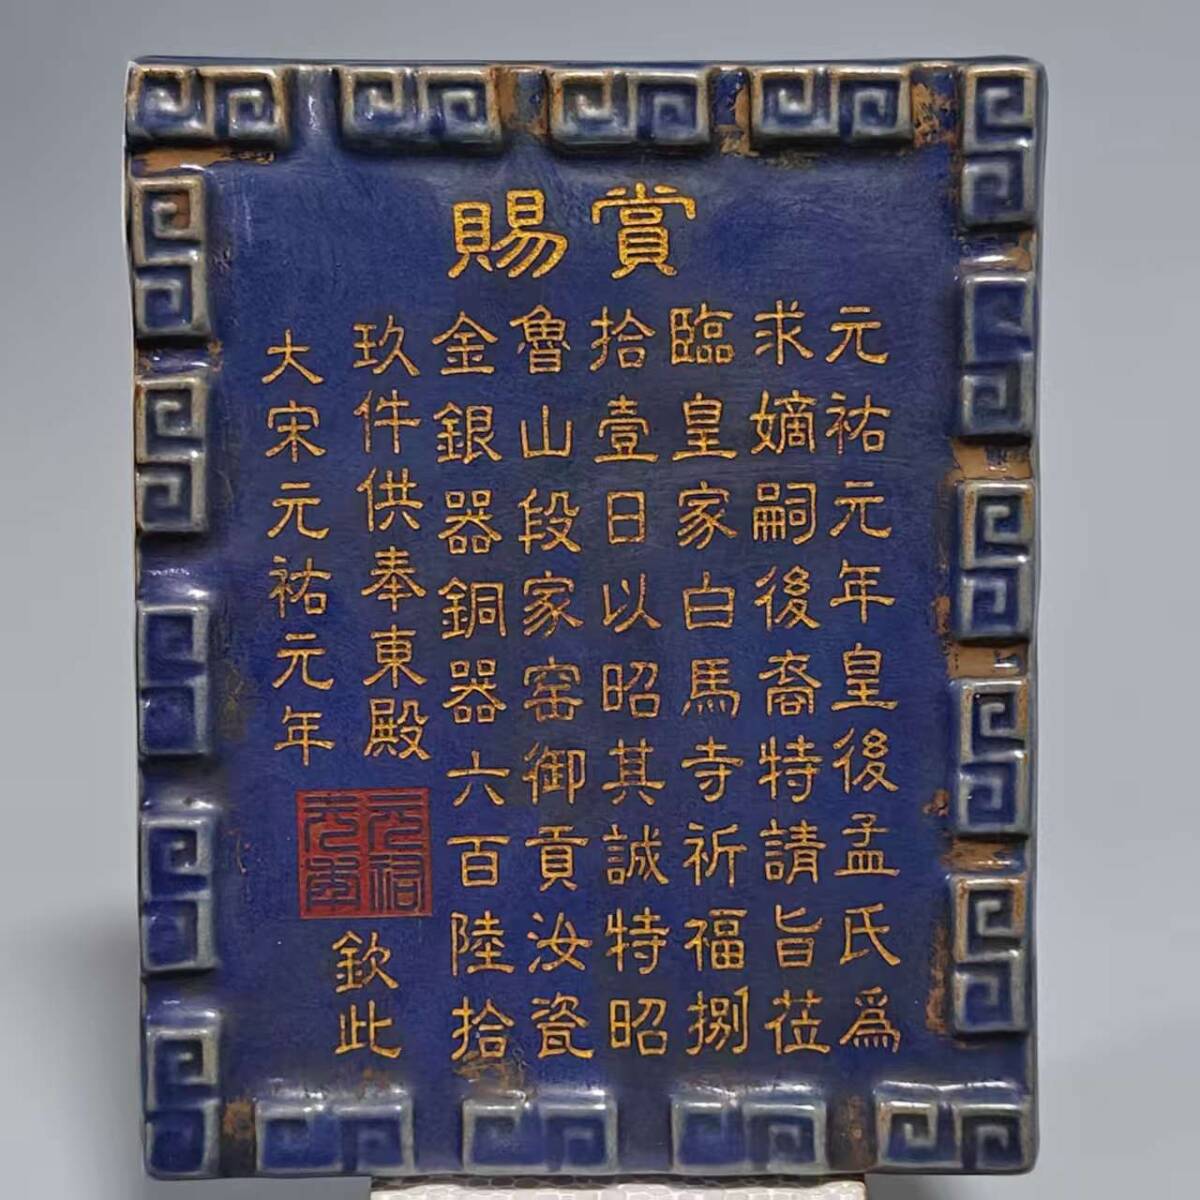 賞賜
元祐元年皇後孟氏為
求嫡嗣後裔特請旨莅
臨皇家白馬寺祈福捌
拾壹日以昭其誠特昭
魯山段家窑御貢汝瓷
金銀器銅器六百陸拾
玖件供奉東殿
大宋元祐元年
元祐
元年
欽此